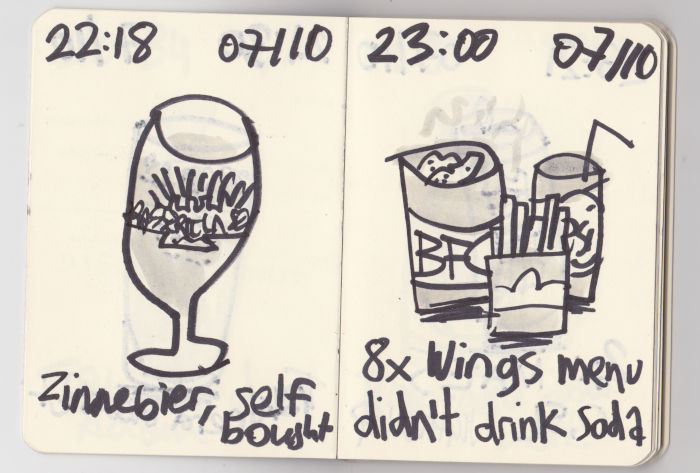 22:18 07/10
Zinnebier, self
bought
23:00 07/10
BFC
8x Wings menu
didn't drink soda